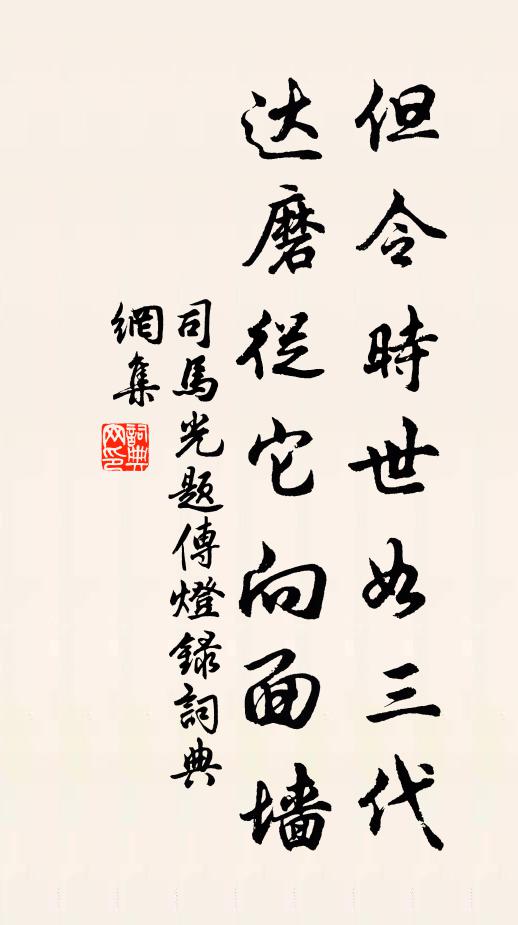 但令時世如三代
达磨從它向面墙
司馬光题傳燈録詞典
網集
詞典
网印